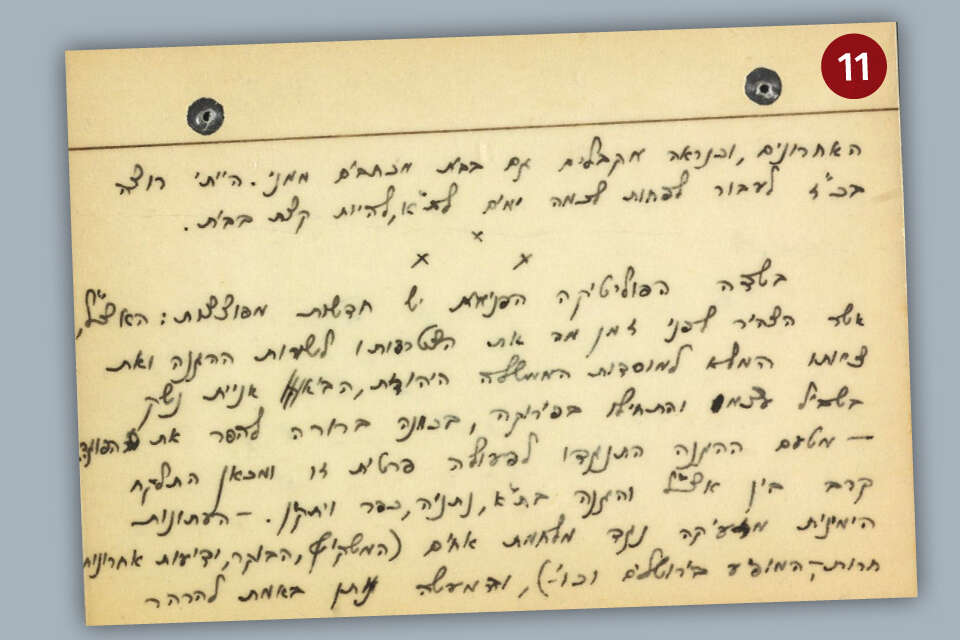 11
האחרונים, וכנראה מקבלים גם בבת מכתבים ממני. הייתי רוצה
בכ"ז לעבור לפחות לכמה ימים לת"א, להיות קצת בבית.
x
x x
בשדה הפוליטיקה הפנימית יש חדשות מפוצצות: האצ"ל,
אשר הצהיר לפני זמן מה את הצטרפותו לשורות ההגנה ואת
ציותו המלא למוסדות הממשלה היהודית, הביאו אניית נשק
בשביל עצמו והתחילו בפירוקה, בכוונה ברורה להפר את ההפוגה.
— מטעם ההגנה התנגדו לפעולה פרטית זו ומכאן התלקח
קרב בין אצ"ל והגנה בת"א, נתניה, כפר ויתקין. – העתונות
הימנית מזעיקה נגד מלחמת אחים (המשקיף, הבוקר, ידיעות אחרונות
חרות, המופיע בירושלים וכו'), והמעשה נותן באמת להרהר